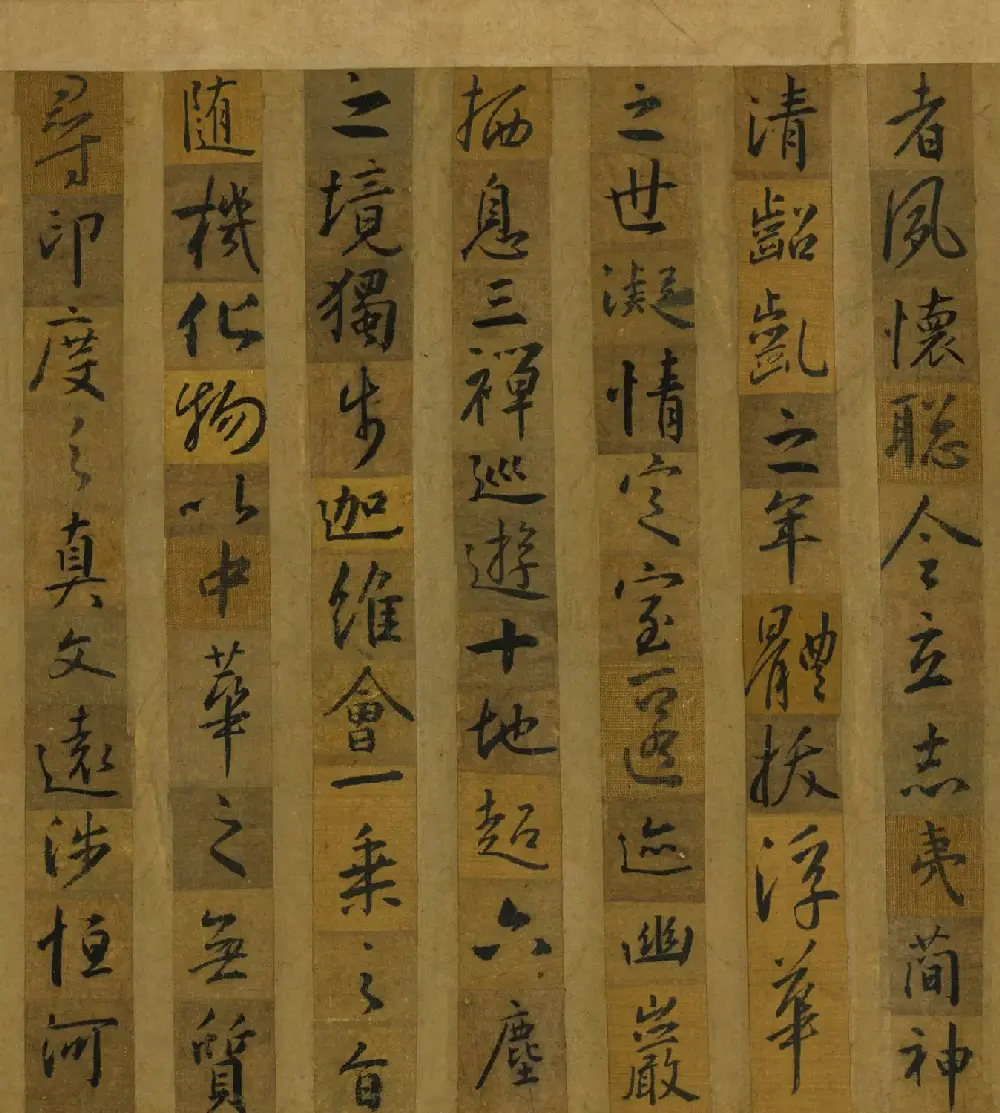 者夙懷聡令立志夷簡神
清齠齓之年體拔浮華
之世凝情定室匿迹幽巖
栖息三禪巡遊十地超六塵
之境獨步迦維會一乘之旨
随機化物以中華之無質
尋印度之真文遠涉恒河